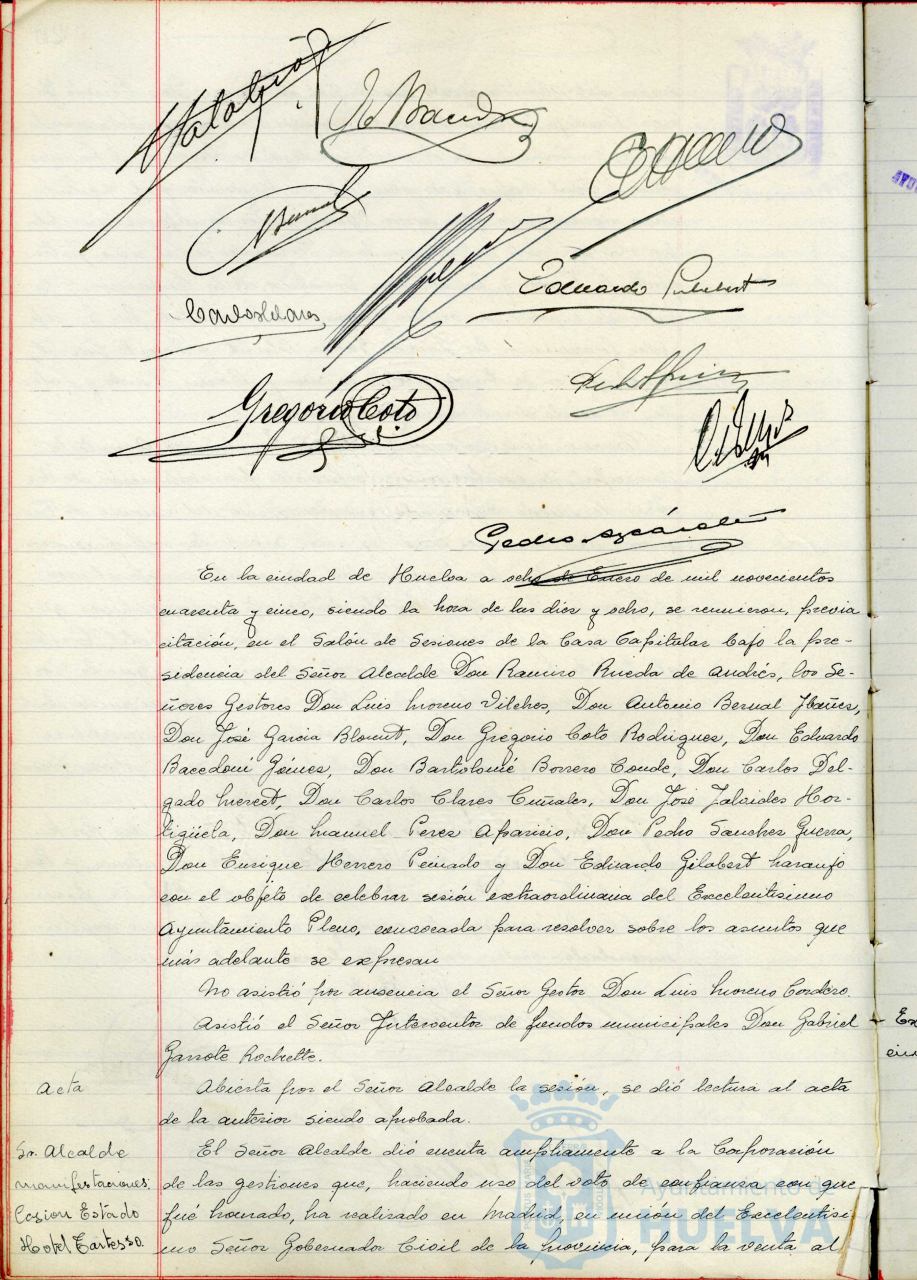 Eduardo Gilabert
Carlos Clares
Gregorio Coto
Pedro
En la ciudad de Huelva a ocho de Enero de mil novecientos
cuarenta y cinco, siendo la hora de las dies y ocho, se reunieron, previa
citación, en el Salón de Sesiones de la Casa Capitular bajo la pre-
sidencia del Señor Alcalde Don Ramiro Rueda de Andrés, los Se-
ñores Gestores Don Luis Moreno Vilches, Don Antonio Bernal Ibañes,
Don José Garcia Blount, Don Gregorio Coto Rodrigues, Don Eduardo
Bacedoni Gómes, Don Bartolomé Borrero Conde, Don Carlos Del-
gado Merect, Don Carlos Clares Cuñales, Don José Jalvides Hor-
tigüela, Don Manuel Peres Aparicio, Don Pedro Sanches Guerra,
Don Enrique Herrero Peinado y Don Eduardo Gilabert Naranjo
con el objeto de celebrar sesión extraordinaria del Excelentisimo
Ayuntamiento Pleno, convocada para resolver sobre los asuntos que
más adelante se expresan
No asistió por ausencia el Señor Gestor Don Luis Moreno Cordero.
Asistió el Señor Interventor de fondos municipales Don Gabriel
Garrote Rochette.
Acta
Abierta por el Señor Alcalde la sesión, se dió lectura al acta
de la anterior siendo aprobada.
Sr. Alcalde
manifestaciones.
Cesion Estado
Hotel Tartesso.
El Señor Alcalde dió cuenta ampliamente a la Corporación
de las gestiones que, haciendo uso del voto de confianza con que
fué honrado, ha realizado en Madrid, en unión del Excelentisi
mo Señor Gobernador Civil de la provincia, para la venta al
Ayuntamiento de
HUELVA